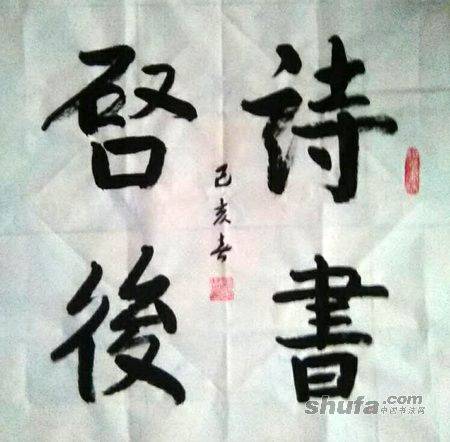 詩書
啓後
己亥春
shufa.com
中国书法网